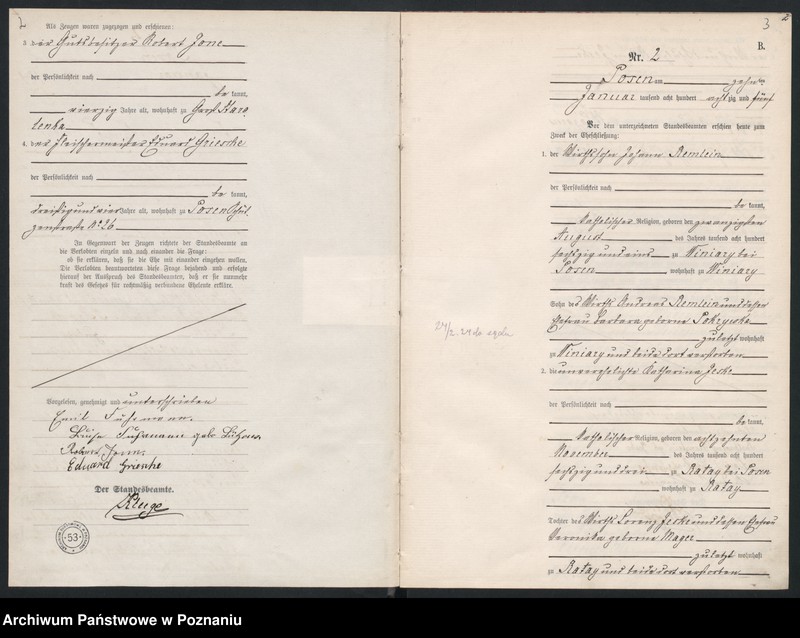 2
Als Zeugen waren zugezogen und erschienen:
3. der Gutsbesitzer Robert Jone
der Persönlichkeit nach
be kannt,
vierzig Jahre alt, wohnhaft zu Groß Staro
lenka
4. der Fleischermeister Eduard Griesche
der Persönlichkeit nach
be kannt,
dreißigundvier Jahre alt, wohnhaft zu Posen Schüt
zenstraße No 26
In Gegenwart der Zeugen richtete der Standesbeamte an
die Verlobten einzeln und nach einander die Frage:
ob sie erklären, daß sie die Ehe mit einander eingehen wollen.
Die Verlobten beantworteten diese Frage bejahend und erfolgte
hierauf der Ausspruch des Standesbeamten, daß er sie nunmehr
kraft des Gesetzes für rechtmäßig verbundene Eheleute erkläre.
Vorgelesen, genehmigt und unterschrieben
Emil Fuhrmann.
Luise Fuhrmann geb.
Robert
Eduard Griesche
Der Standesbeamte.
Kluge
53
3
2
B.
Nr. 2
Posen am zehnten
Januar tausend acht hundert achtzig und fünf
Vor dem unterzeichneten Standesbeamten erschien heute zum
Zweck der Eheschließung:
1. der Wirthssohn Johann Remlein
der Persönlichkeit nach
be kannt,
katholischer Religion, geboren den zwanzigsten
August des Jahres tausend acht hundert
sechszig und eins zu Winiary bei
Posen wohnhaft zu Winiary
Sohn des Wirths Andreas Remlein und dessen
Ehefrau Barbara geborene Pokrywka
zuletzt wohnhaft
zu Winiary und beide dort verstorben
2. die unverehelichte Katharina Jeske
der Persönlichkeit nach
be kannt,
katholischer Religion, geboren den achtzehnten
November des Jahres tausend acht hundert
sechszig und drei zu Ratay bei Posen
wohnhaft zu Ratay
Tochter des Wirths Lorenz Jeske und dessen Ehefrau
Veronika geborene Mager
zuletzt wohnhaft
zu Ratay und beide dort verstorben
Archiwum Państwowe w Poznaniu